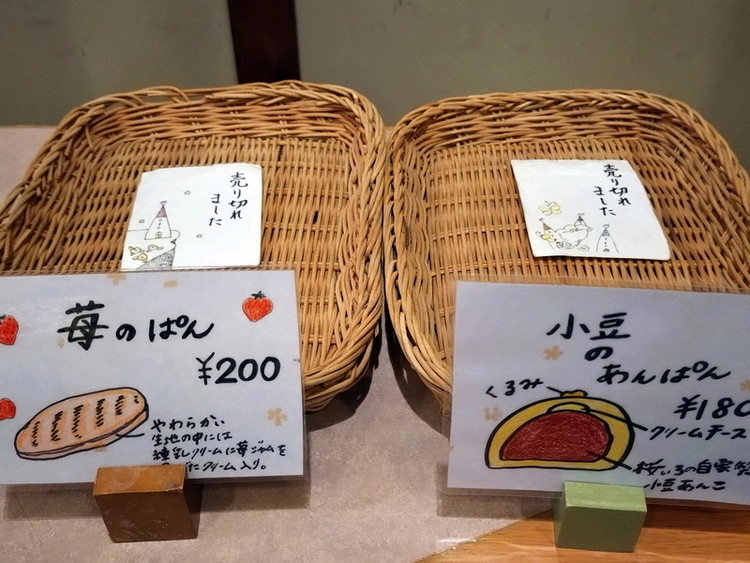 売り切れ
ました
売り切れ
ました
苺のぱん
¥200
やわらかい
生地の中には
練乳クリームに苺ジャムを
たクリーム入り。
小豆
の
あんぱん
¥180
くるみ
クリームチーズ
桜いろの自家
小豆あんこ